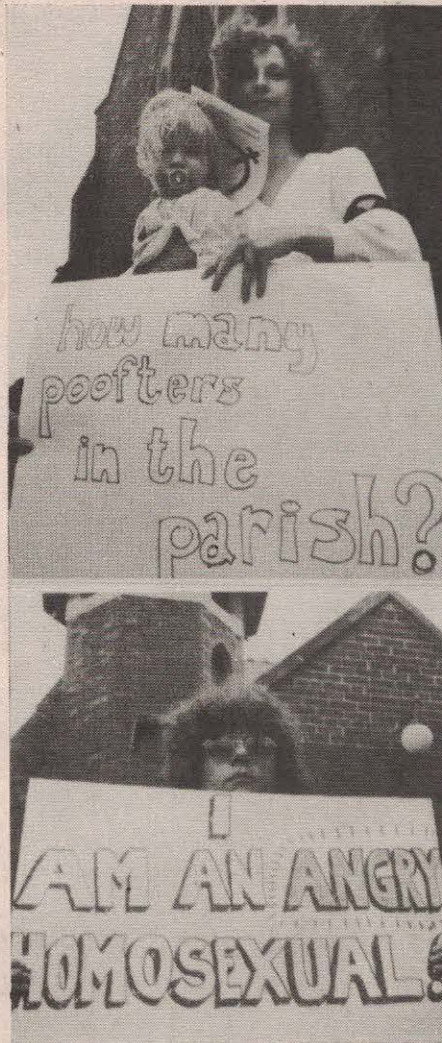 how many
poofters
in the
parish?
I
AM AN ANGRY
HOMOSEXUAL!